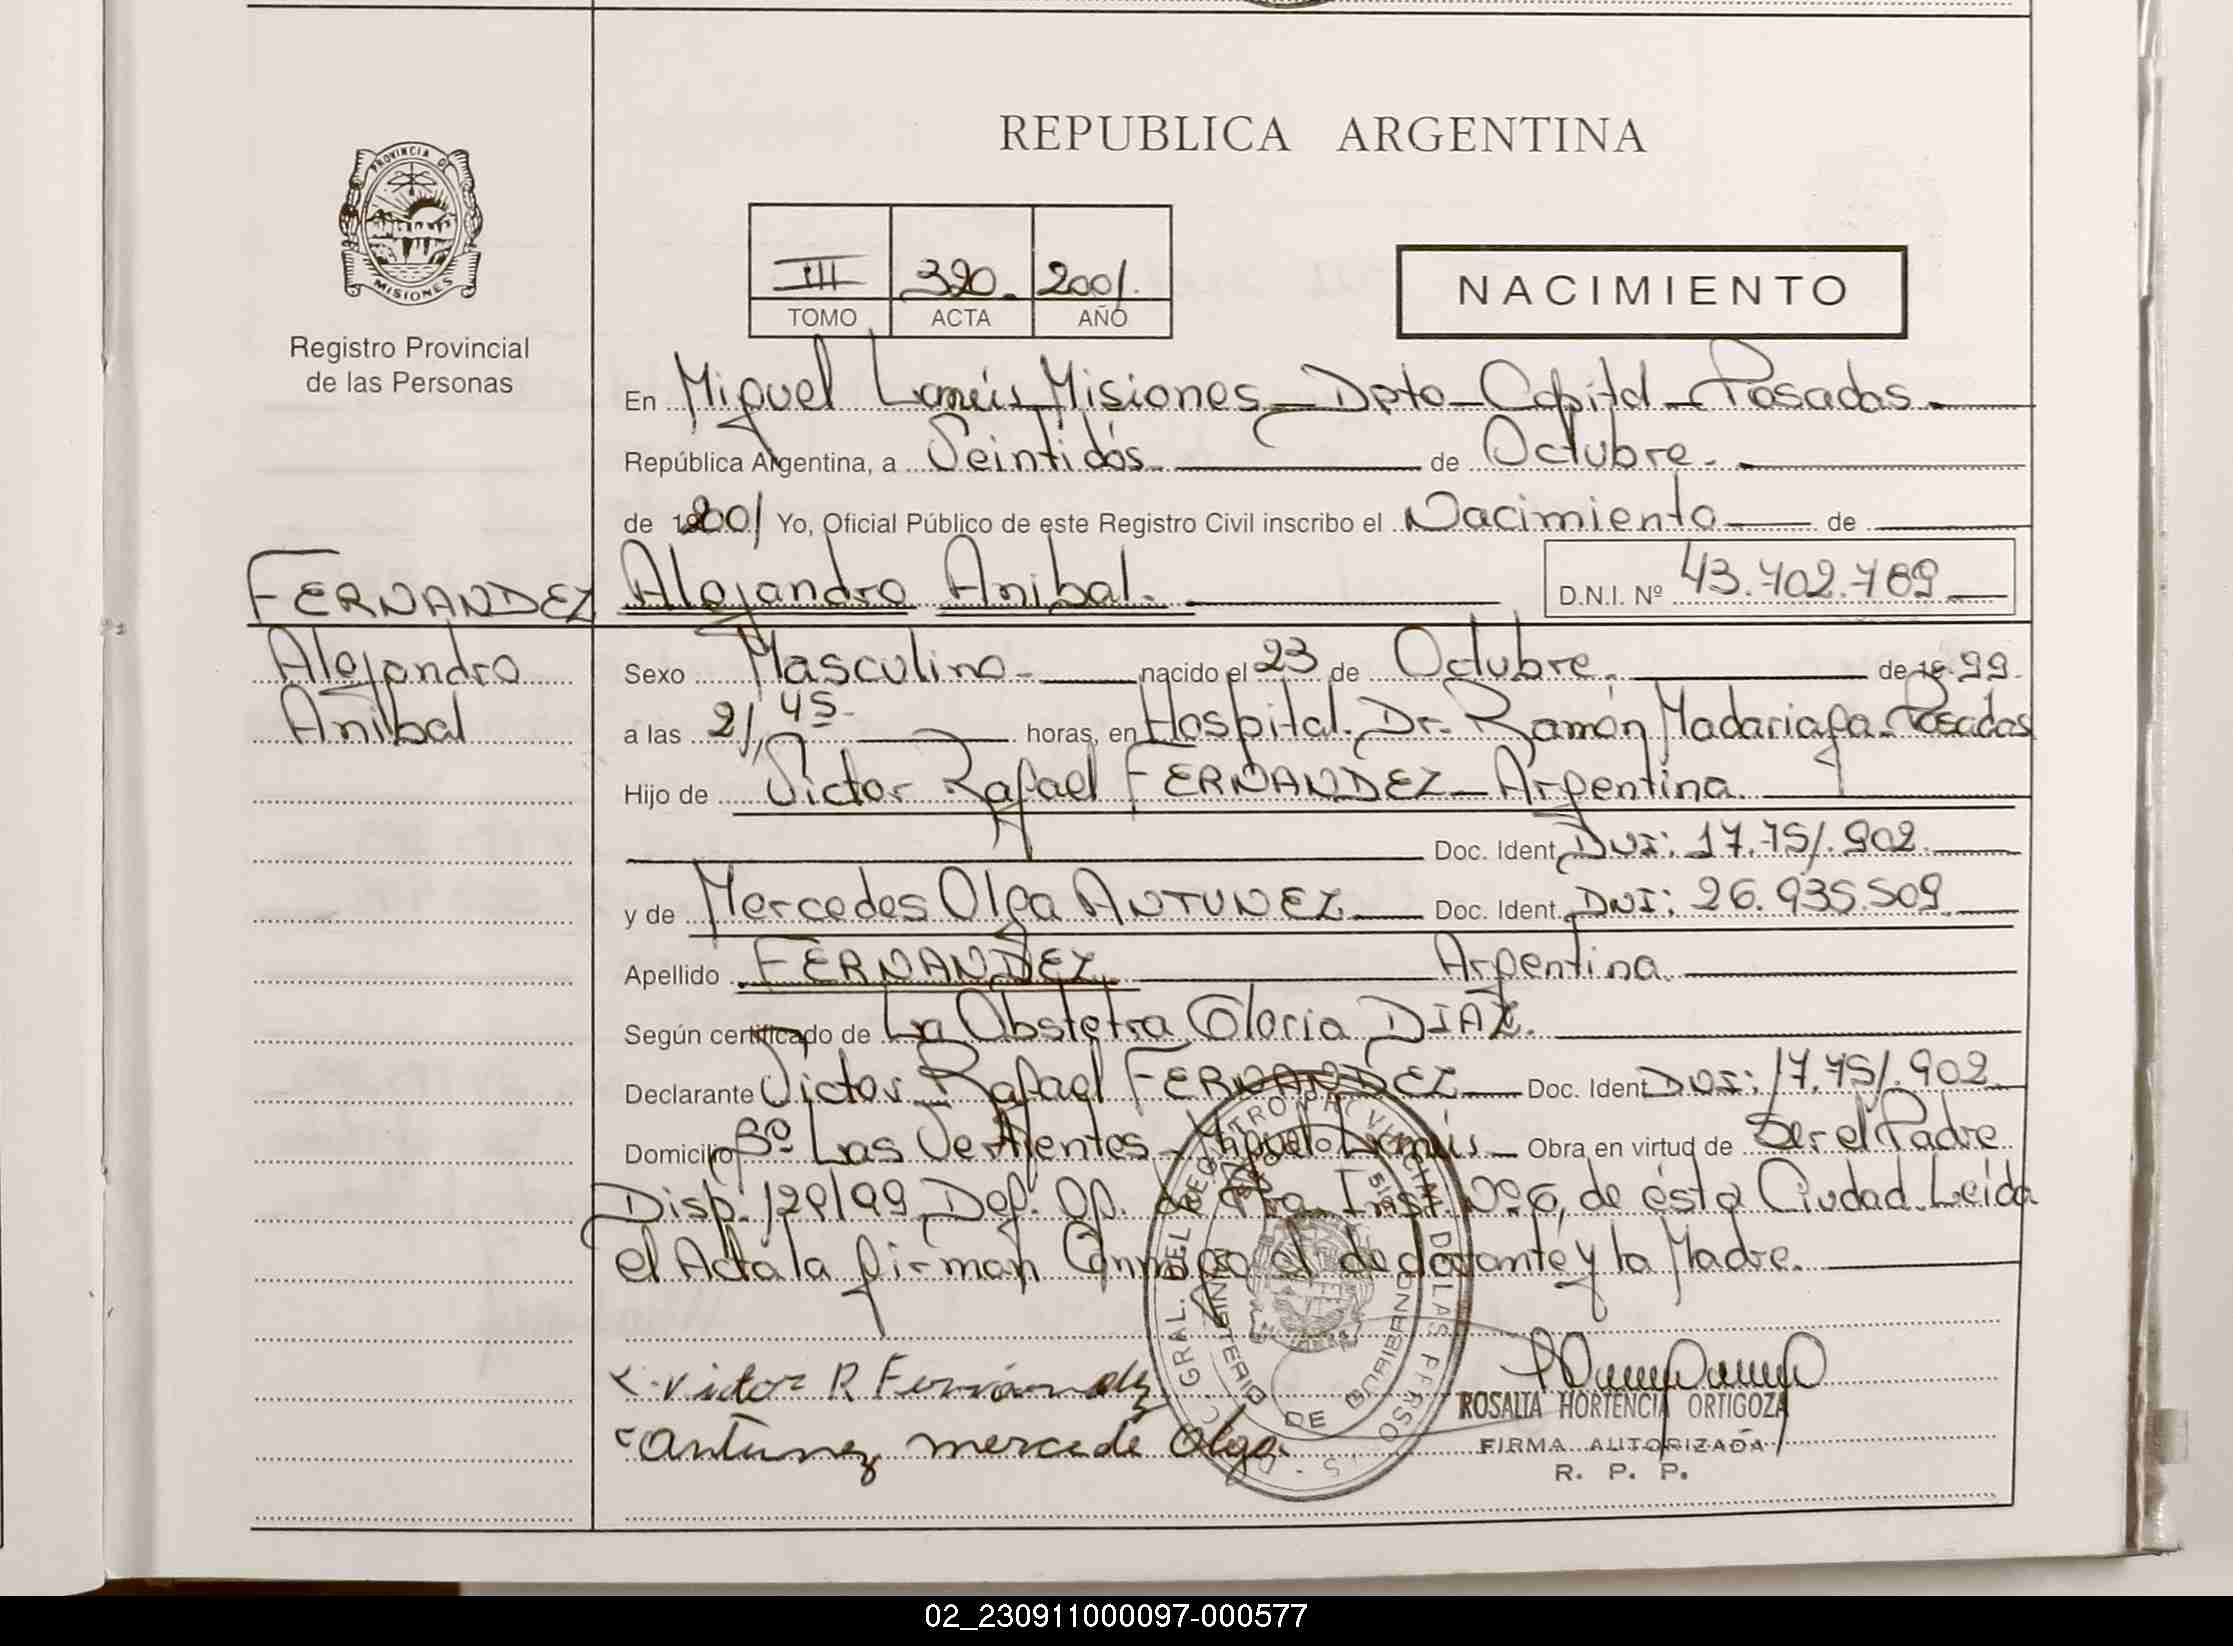 REPUBLICA ARGENTINA
PROVINCIA DE
MISIONES
Registro Provincial
de las Personas
III 320. 2001.
TOMO ACTA AÑO
NACIMIENTO
En Miguel Lanús Misiones Dpto Capital Posadas.
República Argentina, a Veintidós de Octubre.
de 2001 Yo, Oficial Público de este Registro Civil inscribo el Nacimiento de
FERNANDEZ Alejandro Anibal. D.N.I. Nº 43.702.789
Alejandro
Anibal
Sexo Masculino nacido el 23 de Octubre. de 19 99.
a las 21,45 horas, en Hospital Dr. Ramón Madariaga Posadas
Hijo de Victor Rafael FERNANDEZ Argentina.
Doc. Ident. DNI: 17.751.902
y de Mercedes Olga ANTUNEZ Doc. Ident. DNI: 26.935.509
Apellido FERNANDEZ Argentina
Según certificado de La Obstetra Gloria DIAZ.
Declarante Victor Rafael FERNANDEZ Doc. Ident. DNI: 17.751.902
Domicilio Bº Las Vertientes Miguel Lanús Obra en virtud de Ser el Padre
Disp. 129/99 Def. Of. de Inst. Nº 6, de ésta Ciudad. Leida
el Acta la firman Conmigo el declarante y la Madre.
Victor R Fernández
Antunez mercede Olga
ROSALIA HORTENCIA ORTIGOZA
FIRMA AUTORIZADA
R. P. P.
02_230911000097-000577